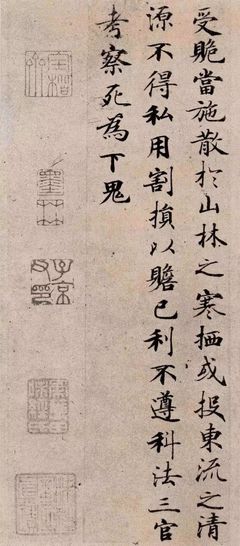 受貺當施散於山林之寒栖或投東流之清
源不得私用割損以贍己利不遵科法三官
考察死為下鬼
墨林
子京父印